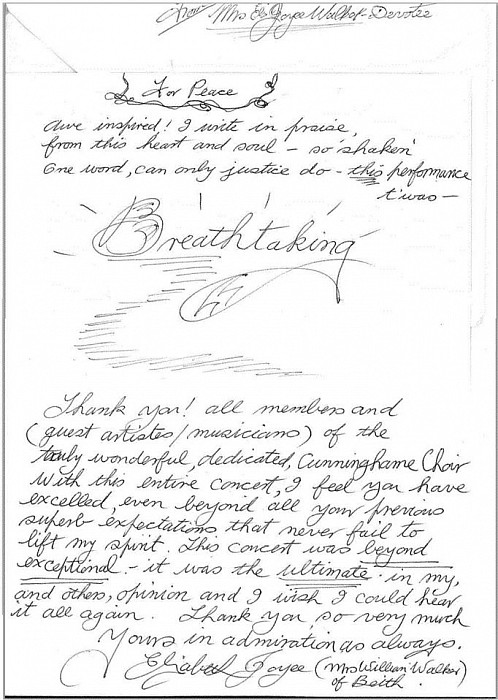 from Mrs E. Joyce Walker - Devotee
For Peace
Awe inspired! I write in praise,
from this heart and soul - so 'shaken'
One word, can only justice do - this performance
t'was -
Breathtaking
Thank you! all members and
(guest artistes/musicians) of the
truly wonderful, dedicated, Cunninghame Choir
With this entire concert, I feel you have
excelled, even beyond all your previous
superb expectations that never fail to
lift my spirit. This concert was beyond
exceptional - it was the ultimate in my,
and others, opinion and I wish I could hear
it all again. Thank you so very much
Yours in admiration as always.
Elizabeth Joyce (Mrs William Walker)
of Beith.